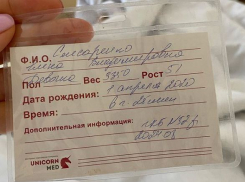 Ф.И.О. Слесаренко
Елена Владимировна
Пол девочка Вес 3350 Рост 51
Дата рождения: 1 апреля 2020
Время: 6 ч.
Дополнительная информация:
UNICORN
MED